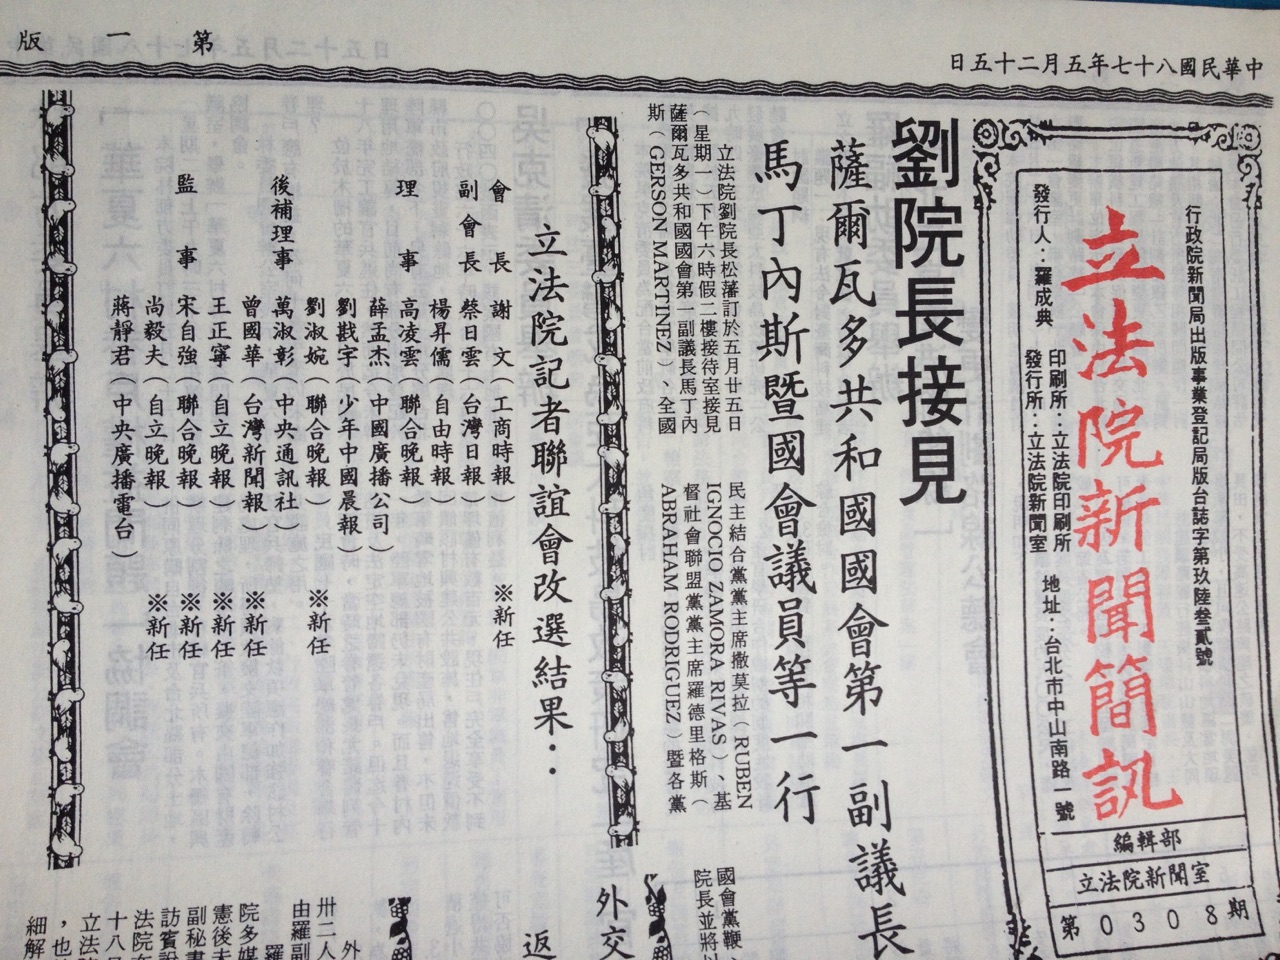 中華民國八十七年五月二十五日
第一版
行政院新聞局出版事業登記局版台誌字第玖陸叁貳號
立法院新聞簡訊
印刷所：立法院印刷所
發行人：羅成典
發行所：立法院新聞室
地址：台北市中山南路一號
編輯部
立法院新聞室
第0308期
劉院長接見
薩爾瓦多共和國國會第一副議長
馬丁內斯暨國會議員等一行
立法院劉院長松藩訂於五月廿五日
（星期一）下午六時假二樓接待室接見
薩爾瓦多共和國國會第一副議長馬丁內
斯（GERSON MARTINEZ）、全國
民主結合黨黨主席撒莫拉（RUBEN
IGNOCIO ZAMORA RIVAS）、基
督社會聯盟黨黨主席羅德里格斯（
ABRAHAM RODRIGUEZ）暨各黨
國會黨鞭、
院長並將以
立法院記者聯誼會改選結果：
會長 謝文（工商時報） ※新任
副會長 蔡日雲（台灣日報）
楊昇儒（自由時報）
理事 高凌雲（聯合晚報）
薛孟杰（中國廣播公司）
劉戡宇（少年中國晨報）
劉淑婉（聯合晚報） ※新任
後補理事 萬淑彰（中央通訊社）
曾國華（台灣新聞報） ※新任
王正寧（自立晚報） ※新任
監事 宋自強（聯合晚報） ※新任
尚毅夫（自立晚報） ※新任
蔣靜君（中央廣播電台）
外交
返
外
卅二人
由羅副
羅
院多媒
憲後未
副秘書
訪賓說
法院在
十八日
立法院
，也
細解